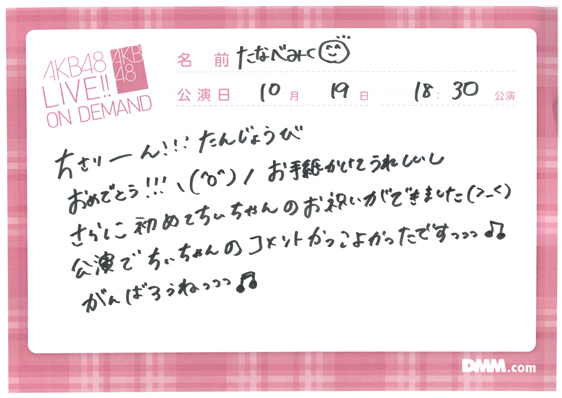 AKB48
LIVE!!
ON DEMAND
AKB
48
名 前 たなべみく
公演日 10月 19日 18:30 公演
ちさりーん!!! たんじょうび
おめでとう!!! ヽ(^o^)ノ お手紙かけてうれしいし
さらに初めてちぃちゃんのお祝いができました(>_<)
公演でちぃちゃんのコメントかっこよかったですっっっ♫
がんばろうねっっっ♫
DMM.com